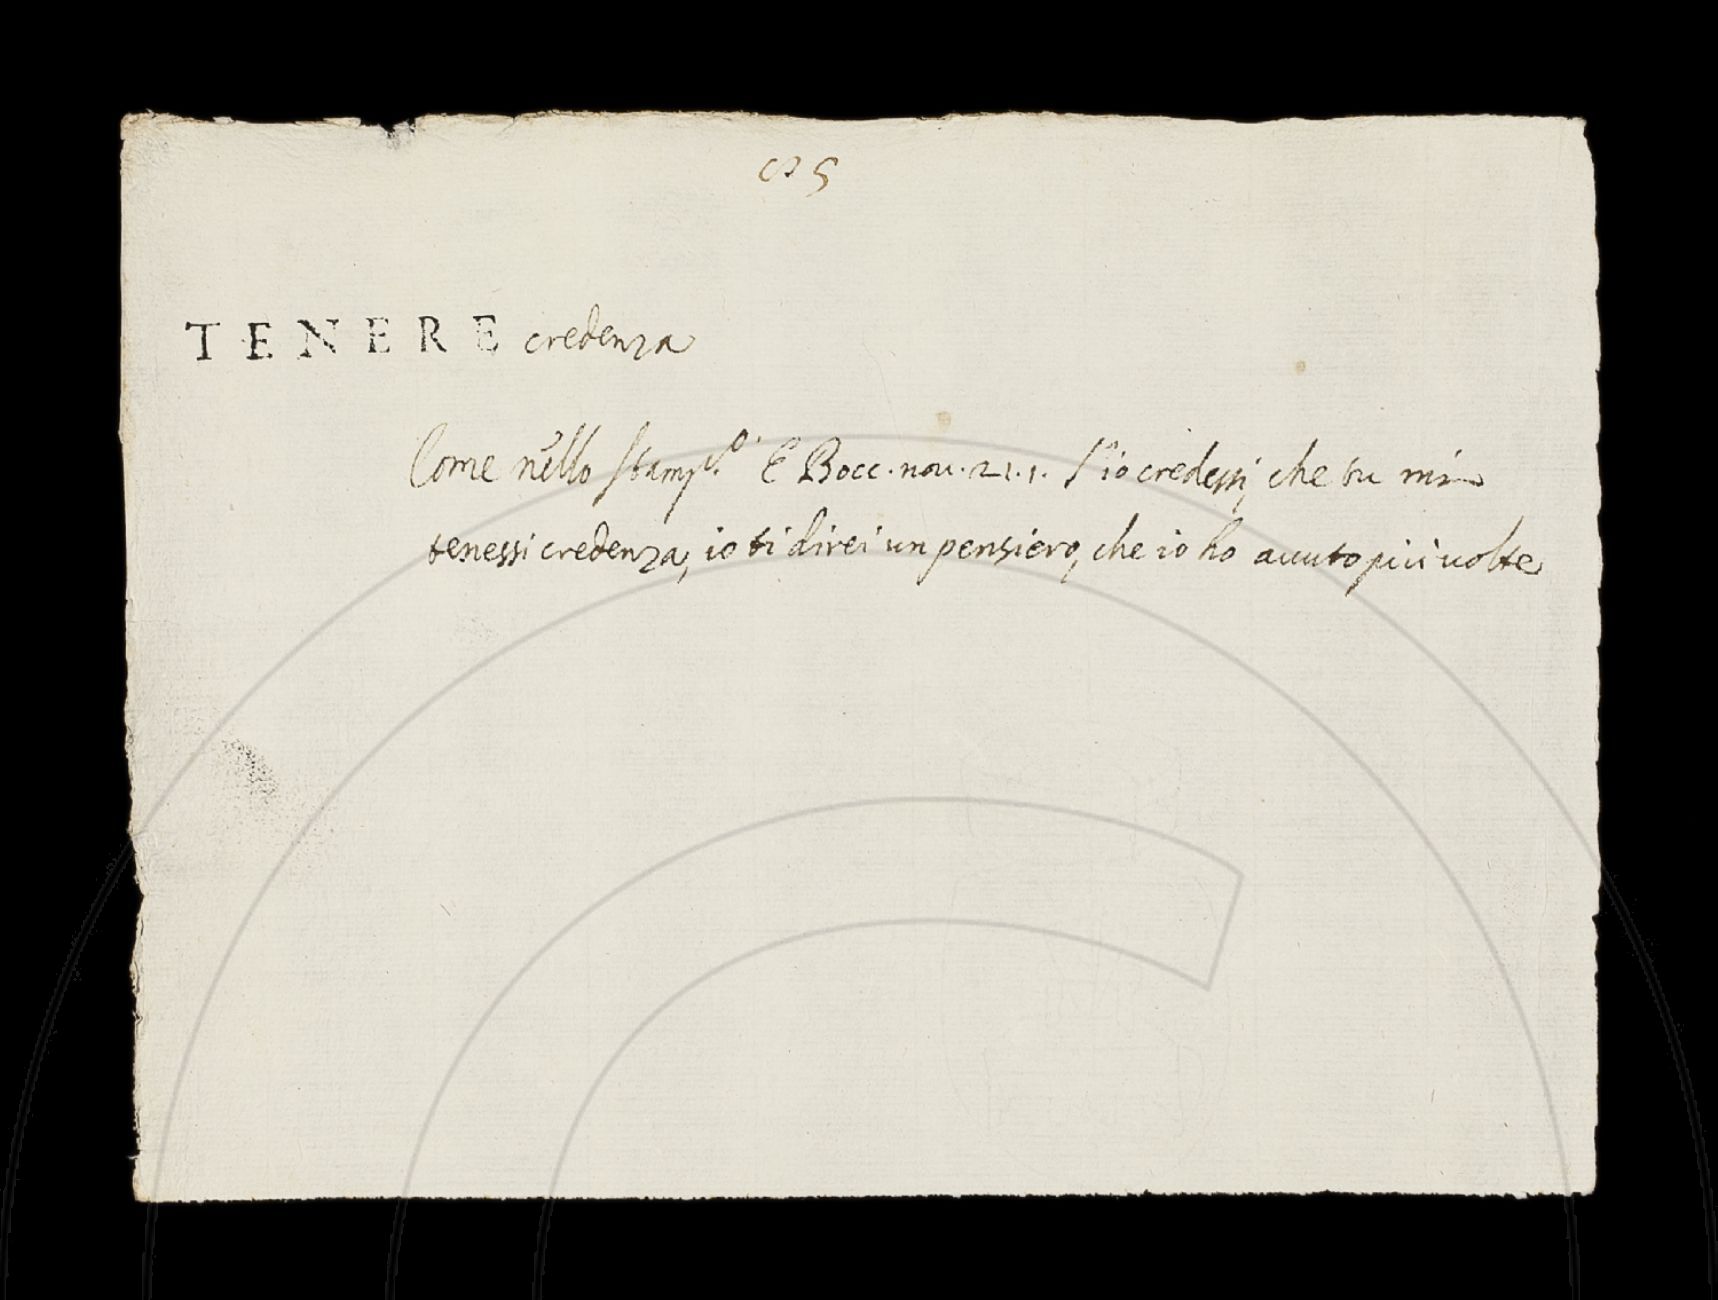 TENERE credenza
Come nello Stamp.º E Bocc. nov. 21. 1. S'io credessi, che tu mi
tenessi credenza, io ti direi un pensiero, che io ho avuto più volte